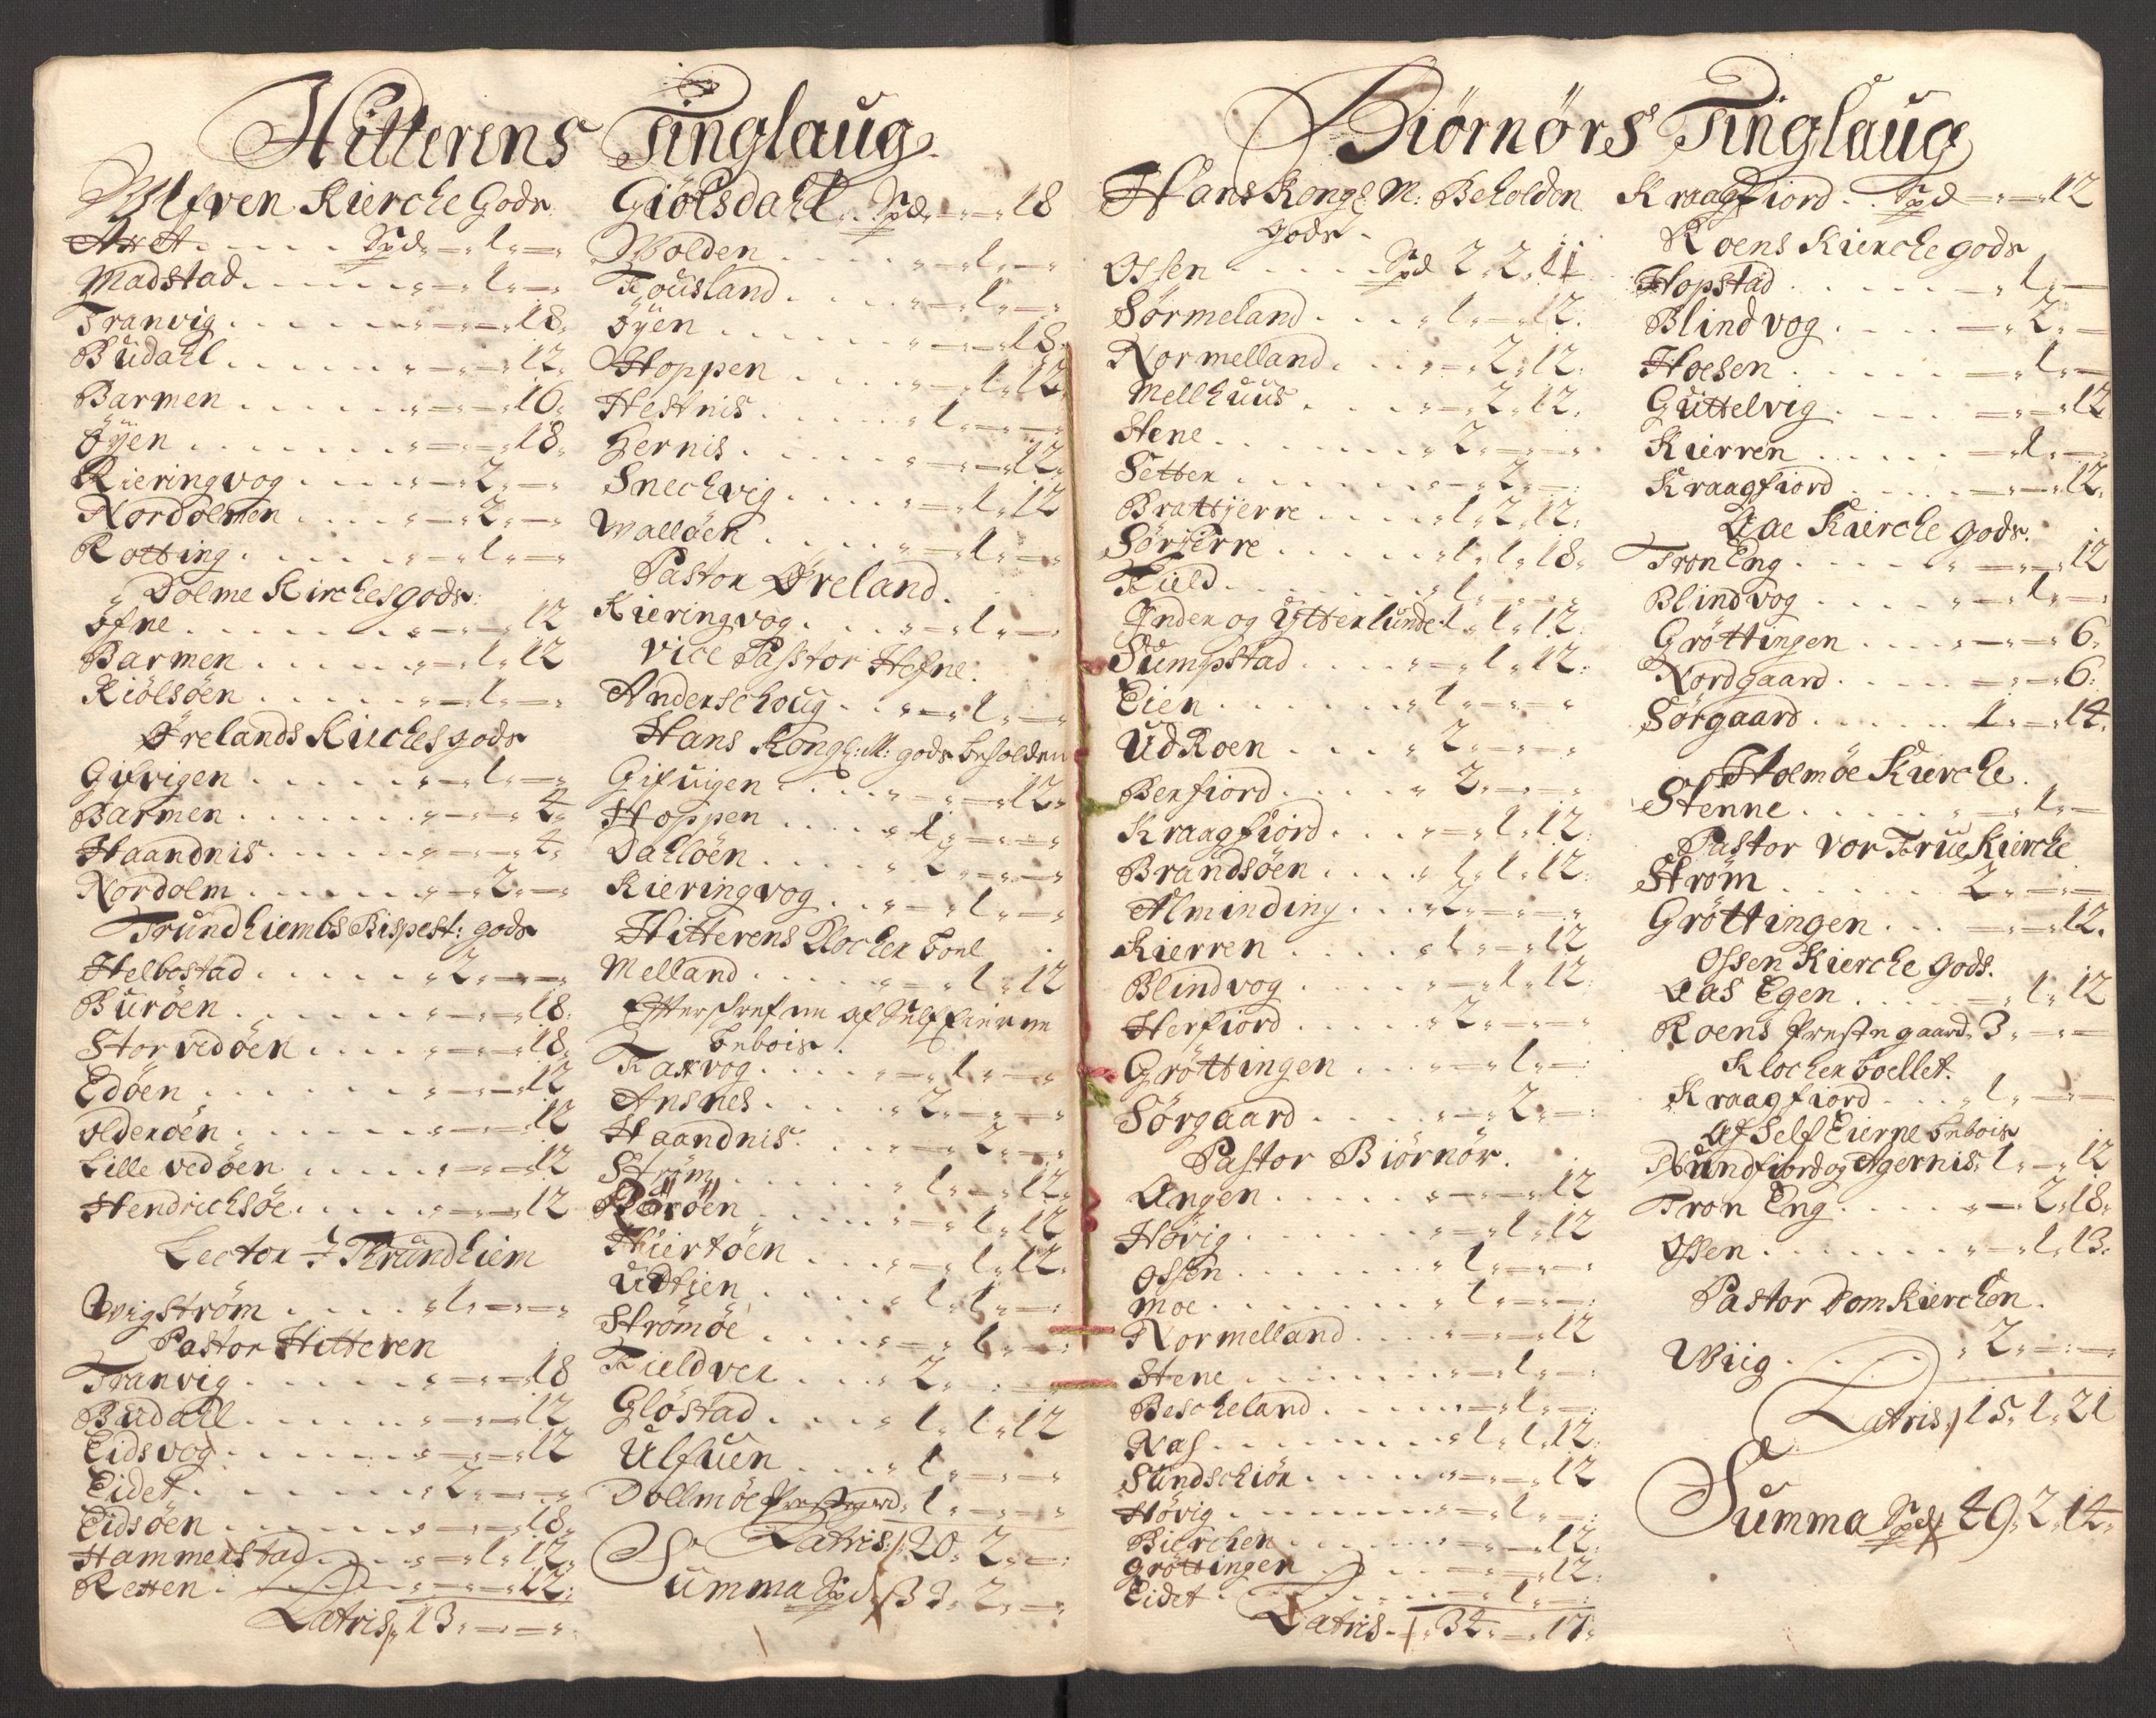 Hitterens Tinglaug
Ulfven Kierche Gods
Axet . . . . . Spd „ — „ 1 „ —
Madstad . . . . . „ — „ 1 „ —
Tranvig . . . . . „ — „ — „ 18
Budahl . . . . . „ — „ — „ 12
Barmen . . . . . „ — „ — „ 16
Öyen . . . . . „ — „ — „ 18
Kieringvog . . . . „ — „ 2 „ —
Nordolmen . . . . „ — „ 2 „ —
Rotting . . . . . „ — „ 1 „ —
Dolme Kirches gods
Öfne . . . . . „ — „ — „ 12
Barmen . . . . . „ — „ 1 „ 12
Kiölsöen . . . . . „ — „ 1 „ —
Ørelands Kirches gods
Gifvigen . . . . . „ — „ 1 „ —
Barmen . . . . . „ — „ — „ 4
Haandnis . . . . . „ — „ — „ 4
Nordolm . . . . . „ — „ 2 „ —
Trundhiembs Bispest: gods
Helbostad . . . . . „ 2 „ — „ —
Buröen . . . . . „ — „ — „ 18
Storvedöen . . . . „ — „ — „ 18
Edöen . . . . . „ — „ — „ 12
Olderöen . . . . . „ — „ — „ 12
Lille vedöen . . . . „ — „ — „ 12
Hendrichsöe . . . . „ — „ — „ 12
Lector i Thrundhiem
Wigström . . . . „ 1 „ — „ —
Pastor Hitteren
Tranvig . . . . . „ — „ — „ 18
Budahl . . . . . „ — „ — „ 12
Eidsvog . . . . . „ — „ — „ 12
Eidet . . . . . „ 2 „ — „ —
Eidsöen . . . . . „ — „ — „ 18
Hammerstad . . . . „ — „ 1 „ 12
Retten . . . . . „ — „ — „ 12
Latris „ 13 „ — „ —
Giölsdahl . . Spd „ — „ — „ 18
Wolden . . . . . „ — „ 1 „ —
Fousland . . . . . „ — „ 1 „ —
Öyen . . . . . „ — „ — „ 18
Hoppen . . . . . „ — „ 1 „ 12
Hestnis . . . . . „ 1 „ — „ —
Hernis . . . . . „ — „ — „ 12
Snechvig . . . . „ — „ 1 „ 12
Wallöen . . . . . „ — „ 1 „ —
Pastor Øreland
Kieringvog . . . . „ — „ 1 „ —
Vice Passtor Hefne
Anderschoug . . . „ — „ 1 „ —
Hans Kongl: M: gods beholden
Gifuigen . . . . „ — „ — „ 12
Hoppen . . . . „ 1 „ — „ —
Dahlöen . . . . „ 2 „ — „ —
Kieringvog . . . „ — „ 1 „ —
Hitterens Klocher boel
Melland . . . . „ — „ 1 „ 12
Efterschrefne af Self Eierne
bebois
Faxvog . . . . „ — „ 1 „ —
Ansnes . . . . „ 2 „ — „ —
Haandnis . . . . „ — „ 2 „ —
Ström . . . . „ 1 „ — „ 12
Böröen . . . . „ — „ 1 „ 12
Hiertöen . . . . „ — „ 1 „ 12
Udtien . . . . „ 1 „ 1 „ —
Strömöe . . . . „ — „ 1 „ —
Fieldver . . . . „ 2 „ — „ —
Glöstad . . . . „ 1 „ 1 „ 12
Ulfuen . . . . „ 1 „ — „ —
Dollmöe Prestegrd „ 1 „ — „ —
Latris „ 20 „ 2 „ —
Summa Spd 33 „ 2 „ —
Biörnörs Tinglaug
Hans Kongl: M: Beholden
gods
Ossen . . . . . Spd 2 „ 2 „ 11
Sörmeland . . . . „ 1 „ — „ 12
Normelland . . . . „ — „ 2 „ 12
Mellhuus . . . . „ — „ 2 „ 12
Stene . . . . . „ 2 „ — „ —
Setter . . . . . „ — „ 2 „ —
Brattjerre . . . . „ 1 „ 2 „ 12
Sörjerre . . . . „ 1 „ 1 „ 18
Field . . . . . „ 1 „ — „ —
Inder og Ytterlunde „ 1 „ 1 „ 12
Sumpstad . . . . „ — „ 1 „ 12
Eien . . . . . „ 1 „ — „ —
Ud Roen . . . . „ 2 „ — „ —
Berfiord . . . . „ 2 „ — „ —
Kraagfiord . . . . „ — „ 1 „ 12
Brandsöen . . . . „ 1 „ 1 „ 12
Alminding . . . „ 2 „ — „ —
Kierren . . . . „ 1 „ — „ 12
Blindvog . . . . „ — „ 1 „ 12
Herfiord . . . . „ 2 „ — „ —
Gröttingen . . . „ — „ 1 „ —
Sörgaard . . . . „ — „ 2 „ —
Pastor Biörnör
Angen . . . . . „ — „ — „ 12
Hövig . . . . . „ — „ 1 „ 12
Ossen . . . . . „ 1 „ — „ —
Moe . . . . . „ 1 „ — „ —
Normelland . . . . „ — „ — „ 12
Stene . . . . . „ — „ 1 „ —
Bescheland . . . . „ — „ 1 „ —
Næs . . . . . „ 1 „ 1 „ 12
Sundschiör . . . . „ — „ — „ 12
Hövig . . . . . „ — „ 1 „ —
Bierchen . . . . „ — „ — „ 12
Gröttingen . . . . „ — „ — „ 12
Eidet . . . . . „ — „ 1 „ —
Latris „ 34 „ — „ 17
Kraagfiord . . Spd — „ — „ 12
Roens Kierche gods
Hopstad . . . . . „ 1 „ —
Blindvog . . . . — „ 2 „ —
Hoesen . . . . . — „ 1 „ —
Guttelvig . . . . — „ — „ 12
Kierren . . . . . — „ 1 „ —
Kraagfiord . . . . — „ — „ 12
Aae Kierche gods
Tron Eng . . . . „ — „ — „ 12
Blindvog . . . . „ — „ 1 „ —
Gröttingen . . . . „ — „ — „ 6
Nordgaard . . . . — „ — „ 6
Sörgaard . . . . 1 „ — „ 14
Holmöe Kierche
Stenne . . . . . „ — „ 1 „ —
Pastor Vor Frue Kierche
Ström . . . . . 2 „ — „ —
Gröttingen . . . — „ — „ 12
Ossen Kierche gods
Aas Egen . . . . — „ 1 „ 12
Roens Prestegaard „ 3 „ — „ —
Klocher boellet
Kraagfiord . . . „ 1 „ — „ —
Af Self Eierne bebois
Hundfiord og Agernis „ 1 „ — „ 12
Tron Eng . . . . „ — „ 2 „ 18
Ossen . . . . . „ — „ 1 „ 13
Pastor Domkierchen
Wiig . . . . . „ 2 „ — „ —
Latris „ 15 „ 1 „ 21
Summa Spd 49 „ 2 „ 14